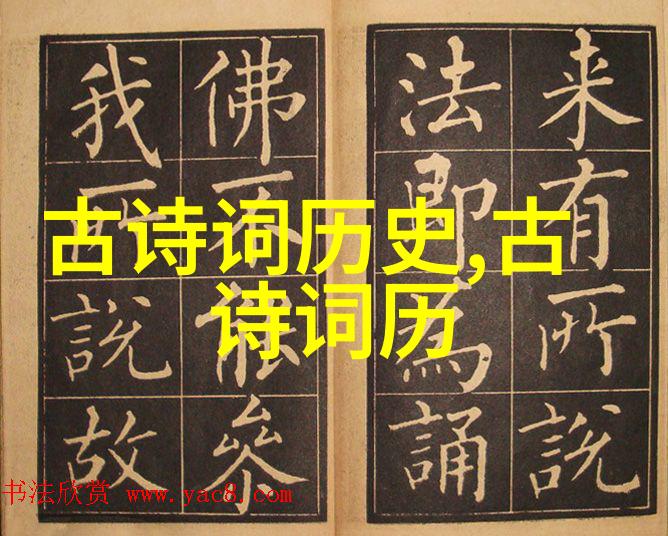 来有所說
法即為誦
佛不能叅
我所說故
古诗词历史,古
诗词历
书法欣赏 www.yac8.com